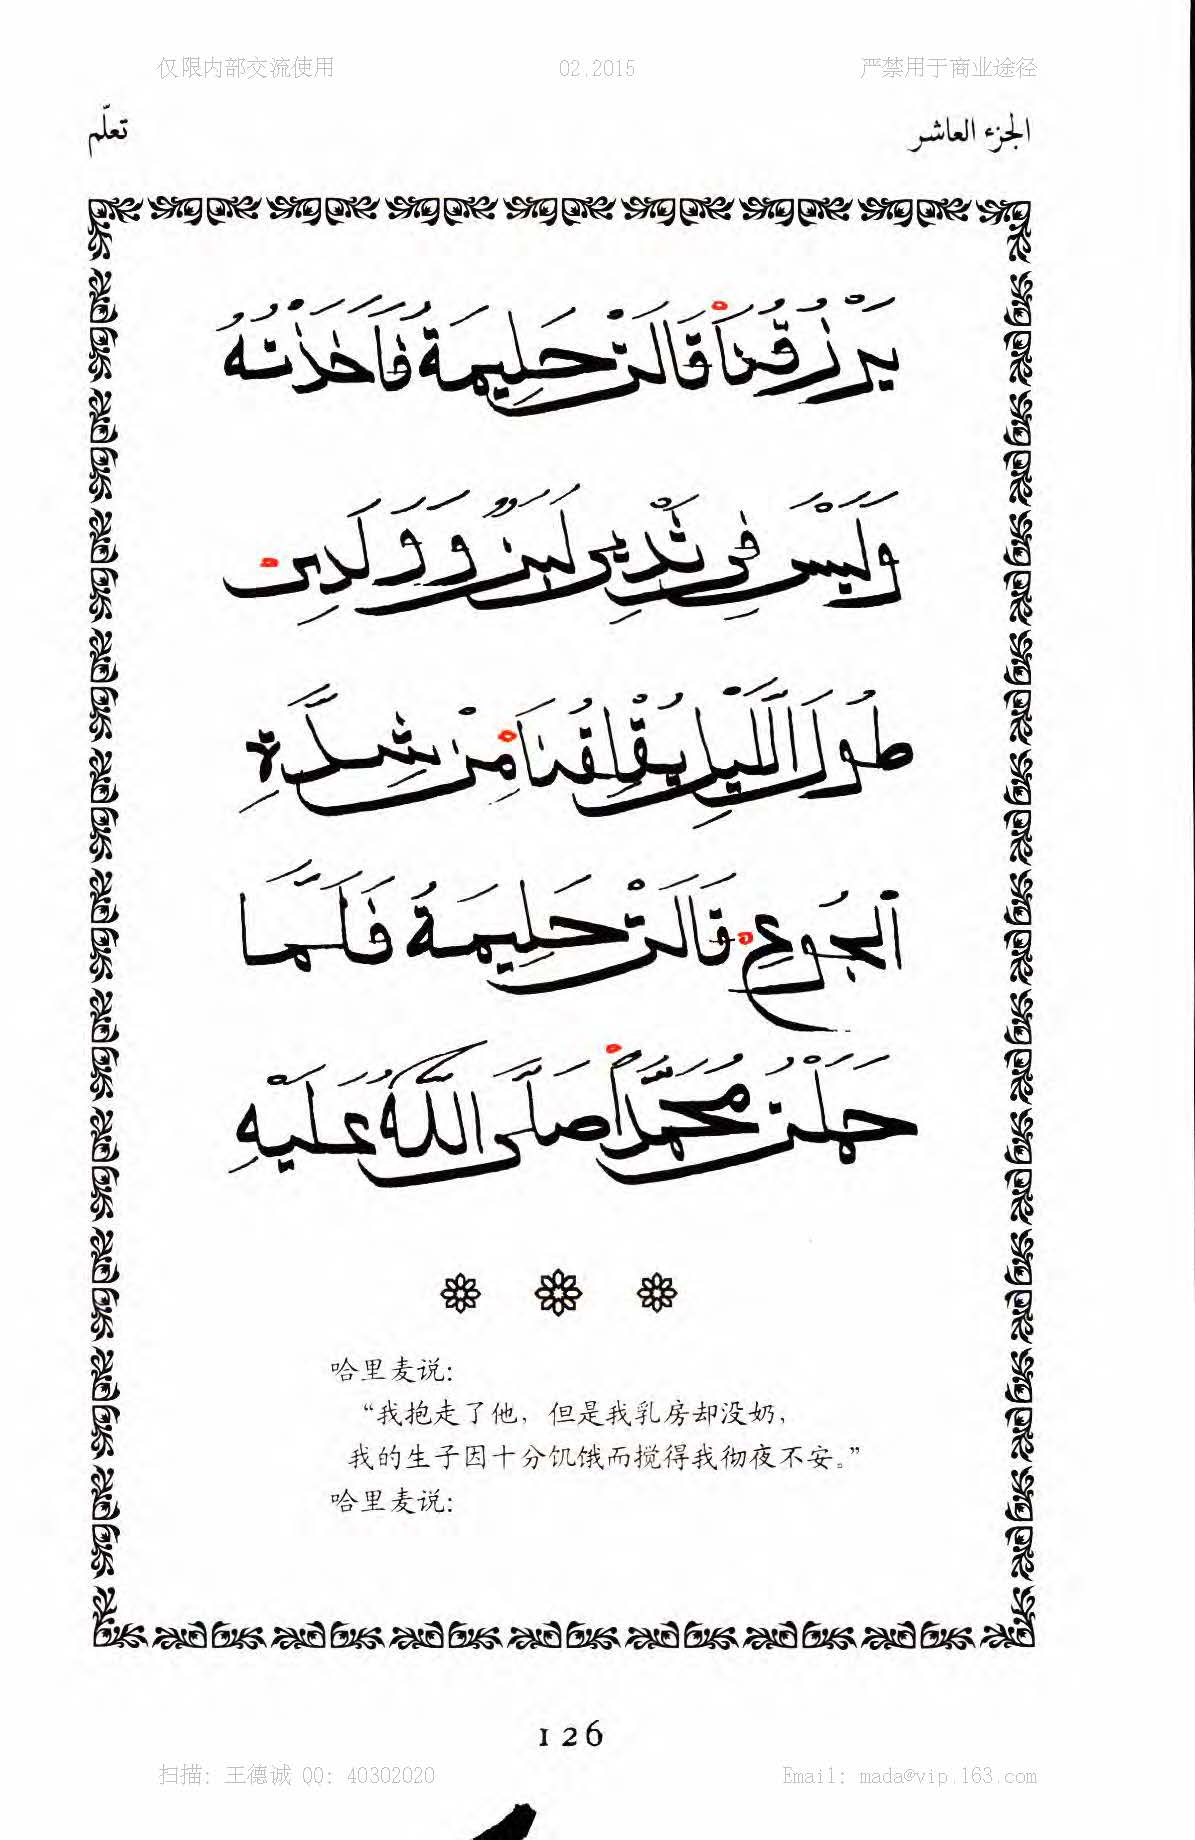 仅限内部交流使用 02.2015 严禁用于商业途径
الجزء العاشر تعلّم
يَرْزُقُنَا قَالَتْ حَلِيمَةُ فَأَخَذْتُهُ
وَلَيْسَ فِي ثَدْيِي لَبَنٌ وَوَلَدِي
طُولَ اللَّيْلِ يُقْلِقُنَا مِنْ شِدَّةِ
ٱلْجُوعِ قَالَتْ حَلِيمَةُ فَلَمَّا
حَمَلْتُ مُحَمَّدًا صَلَّى اللَّهُ عَلَيْهِ
哈里麦说:
“我抱走了他,但是我乳房却没奶,
我的生子因十分饥饿而搅得我彻夜不安。”
哈里麦说:
126
扫描: 王德诚 QQ: 40302020 Email: mada@vip.163.com